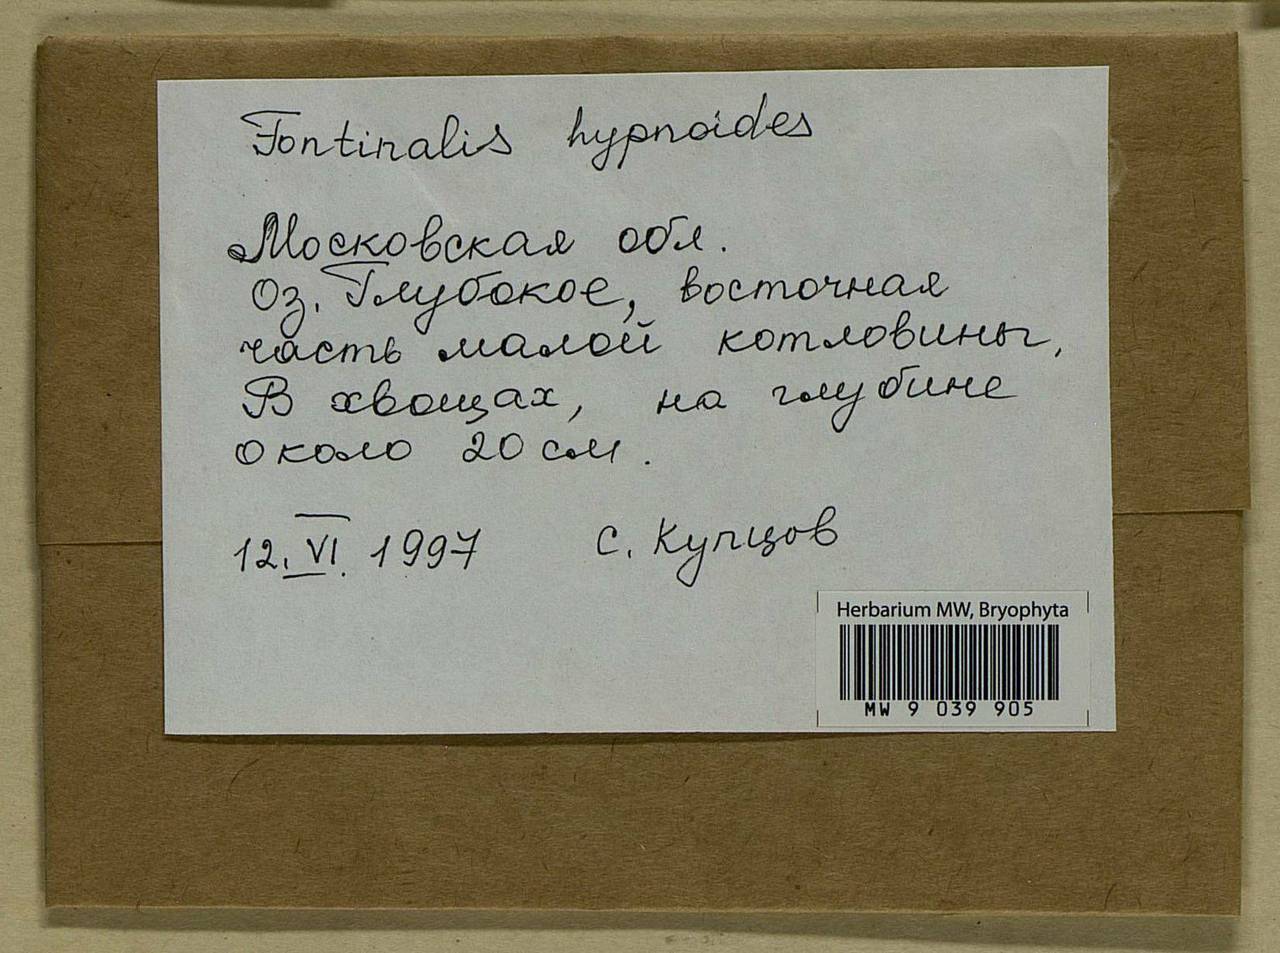 Fontinalis hypnoides
Московская обл.
Оз. Глубокое, восточная
часть малой котловины,
В хвощах, на глубине
около 20 см.
12. VI. 1997 С. Купцов
Herbarium MW, Bryophyta
MW 9 039 905